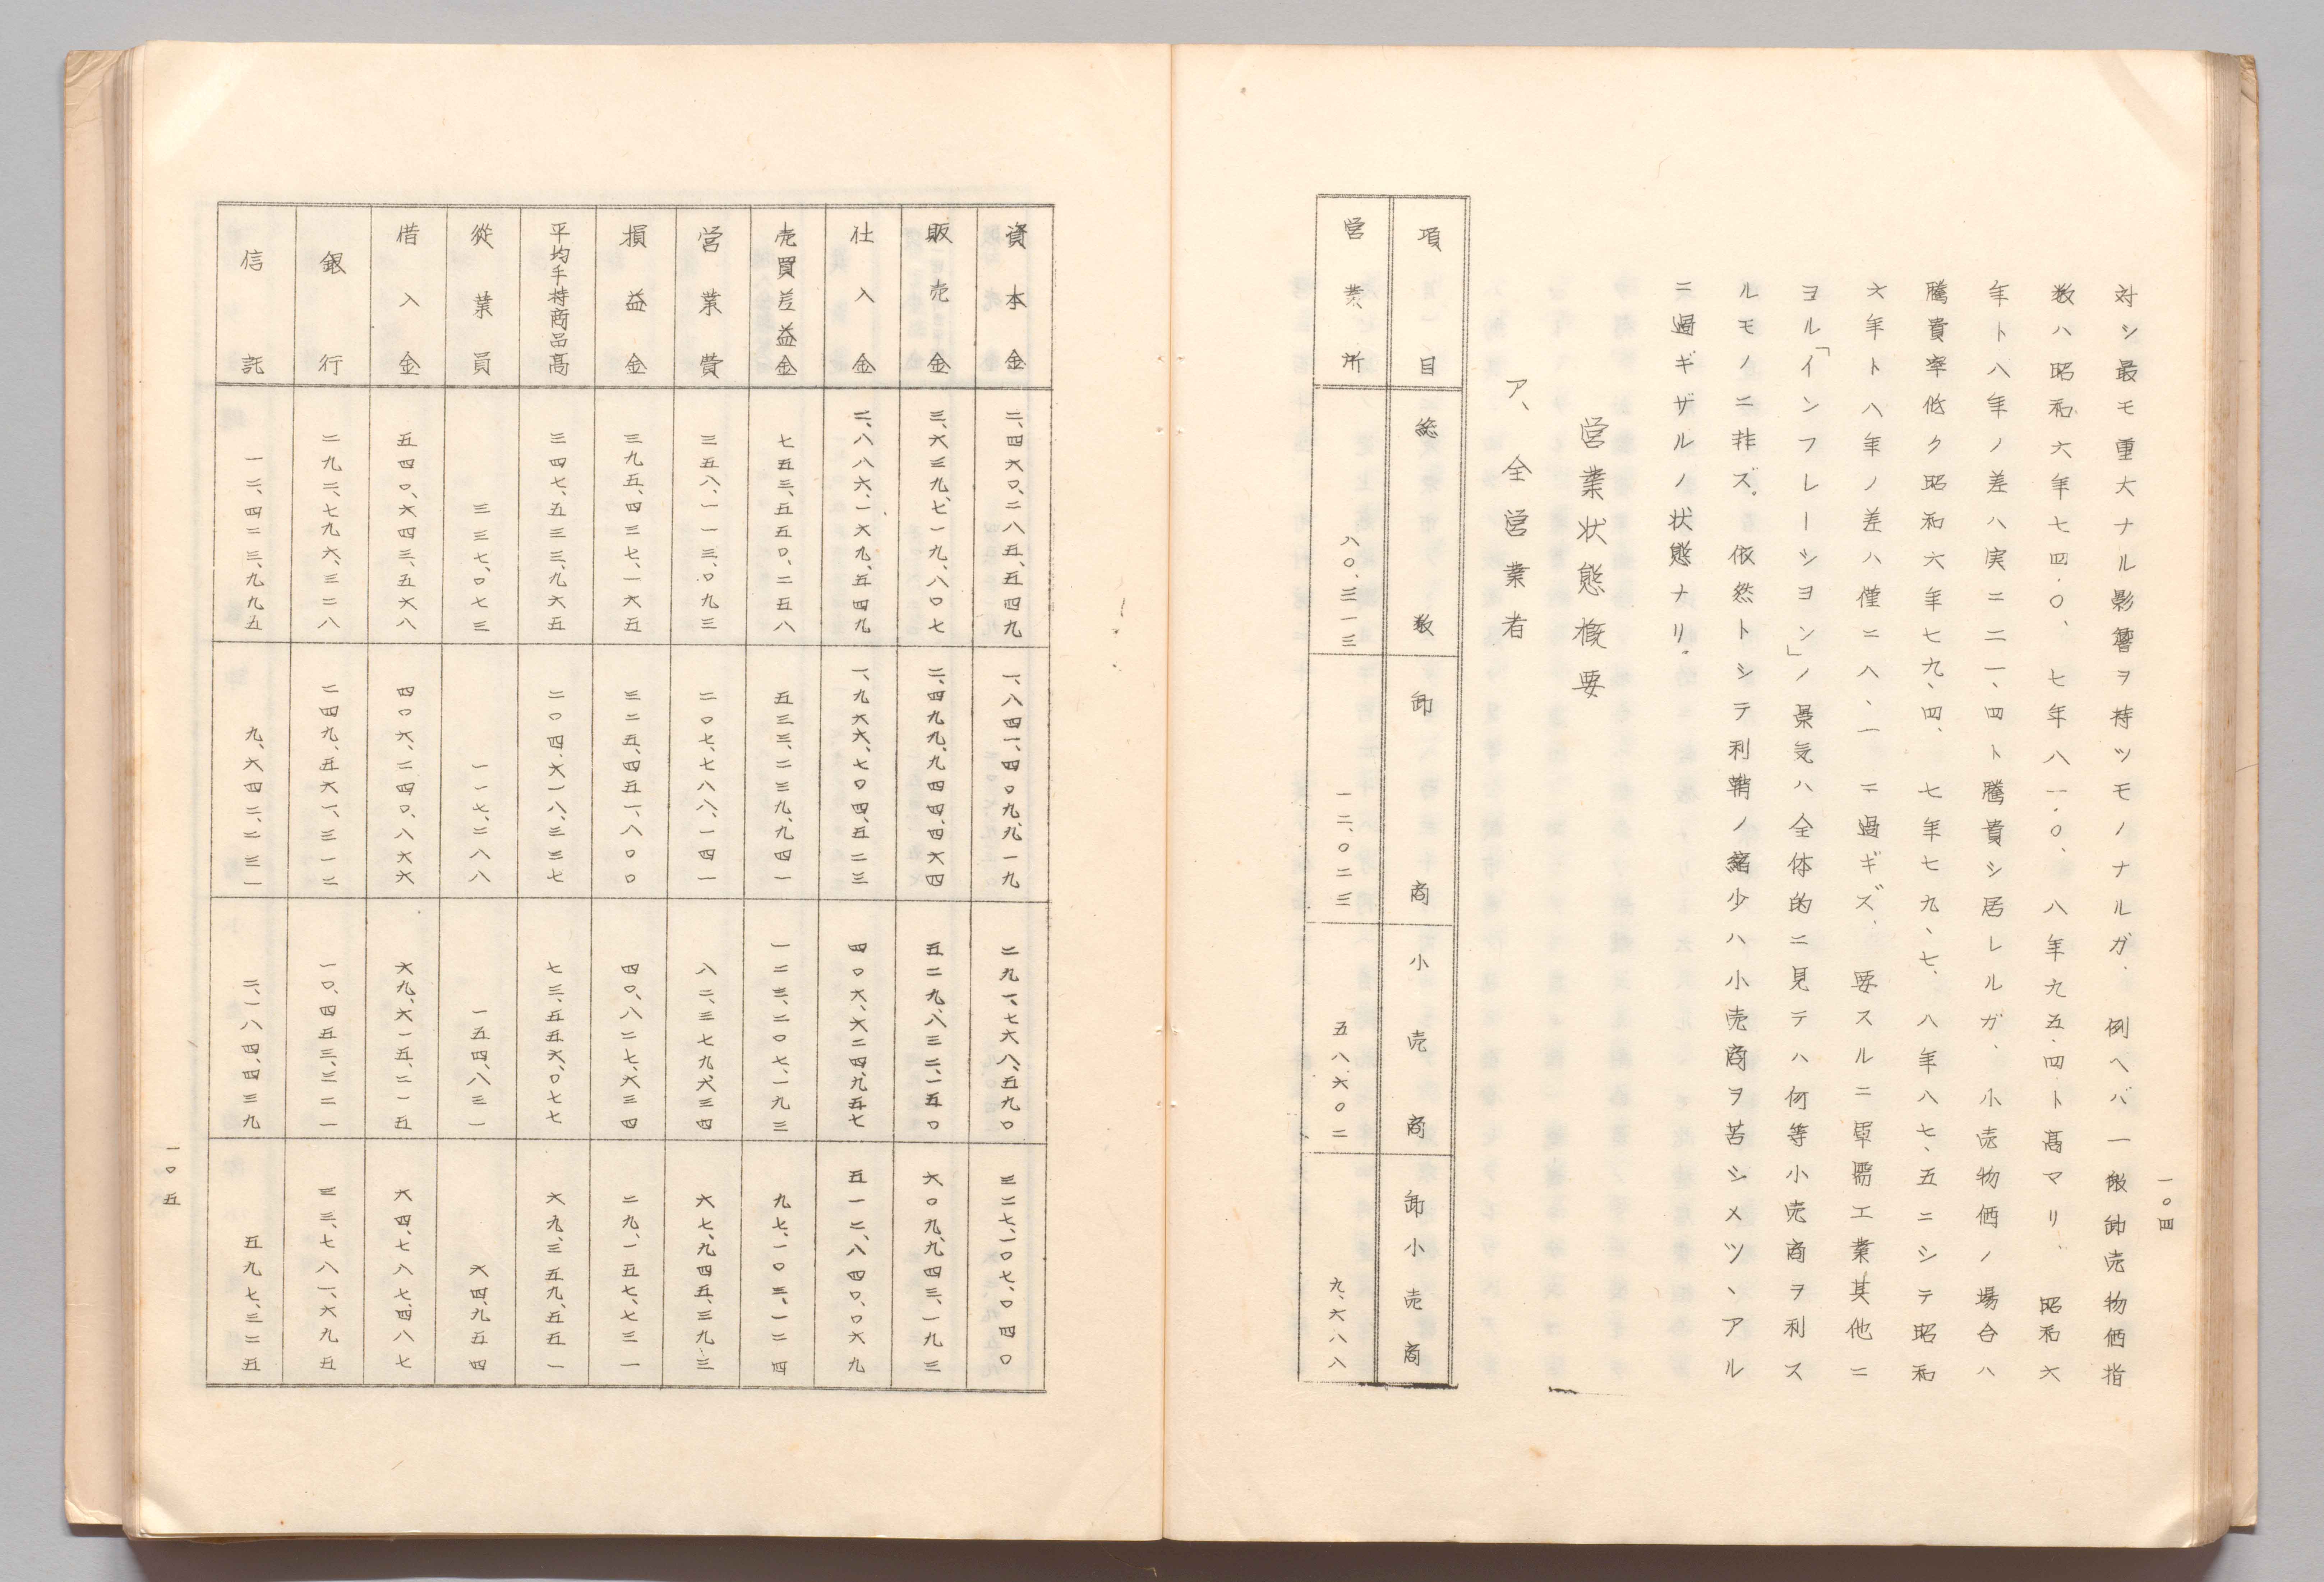 一〇四
対シ最モ重大ナル影響ヲ持ツモノナルガ、例ヘバ一般卸売物価指
数ハ昭和六年七四・〇、七年八一・〇、八年九五・四ト高マリ、昭和六
年ト八年ノ差ハ実ニ二一、四ト騰貴シ居レルガ、小売物価ノ場合ハ
騰貴率低ク昭和六年七九、四、七年七九、七、八年八七、五ニシテ昭和
六年ト八年ノ差ハ僅ニ八、一ニ過ギズ、要スルニ軍需工業其他ニ
ヨル「インフレーシヨン」ノ景気ハ全体的ニ見テハ何等小売商ヲ利ス
ルモノニ非ズ。依然トシテ利鞘ノ縮少ハ小売商ヲ苦シメツヽアル
ニ過ギザルノ状態ナリ。
営業状態概要
ア、全営業者
項目 総数 卸商 小売商 卸小売商
営業所 八〇、三一三 一二、〇二三 五八、六〇二 九、六八八
資本金 二、四六〇、二八五、五四九 一、八四一、四〇九、九一九 二九一、七六八、五九〇 三二七、一〇七、〇四〇
販売金 三、六三九、七一九、八〇七 二、四九九、九四四、四六四 五二九、八三二、一五〇 六〇九、九四三、一九三
仕入金 二、八八六、一六九、五四九 一、九六六、七〇四、五二三 四〇六、六二四、九五七 五一二、八四〇、〇六九
売買差益金 七五三、五五〇、二五八 五三三、二三九、九四一 一二三、二〇七、一九三 九七、一〇三、一二四
営業費 三五八、一一三、〇九三 二〇七、七八八、一四一 八二、三七九、六三四 六七、九四五、三九三
損益金 三九五、四三七、一六五 三二五、四五一、八〇〇 四〇、八二七、六三四 二九、一五七、七三一
平均手持商品高 三四七、五三三、九六五 二〇四、六一八、三三七 七三、五五六、〇七七 六九、三五九、五五一
従業員 三三七、〇七三 一一七、二八八 一五四、八三一 六四、九五四
借入金 五四〇、六四三、五六八 四〇六、二四〇、八六六 六九、六一五、二一五 六四、七八七、四八七
銀行 二九二、七九六、三二八 二四九、五六一、三一二 一〇、四五三、三二一 三三、七八一、六九五
信託 一二、四二三、九九五 九、六四二、二三一 二、一八四、四三九 五九七、三二五
一〇五